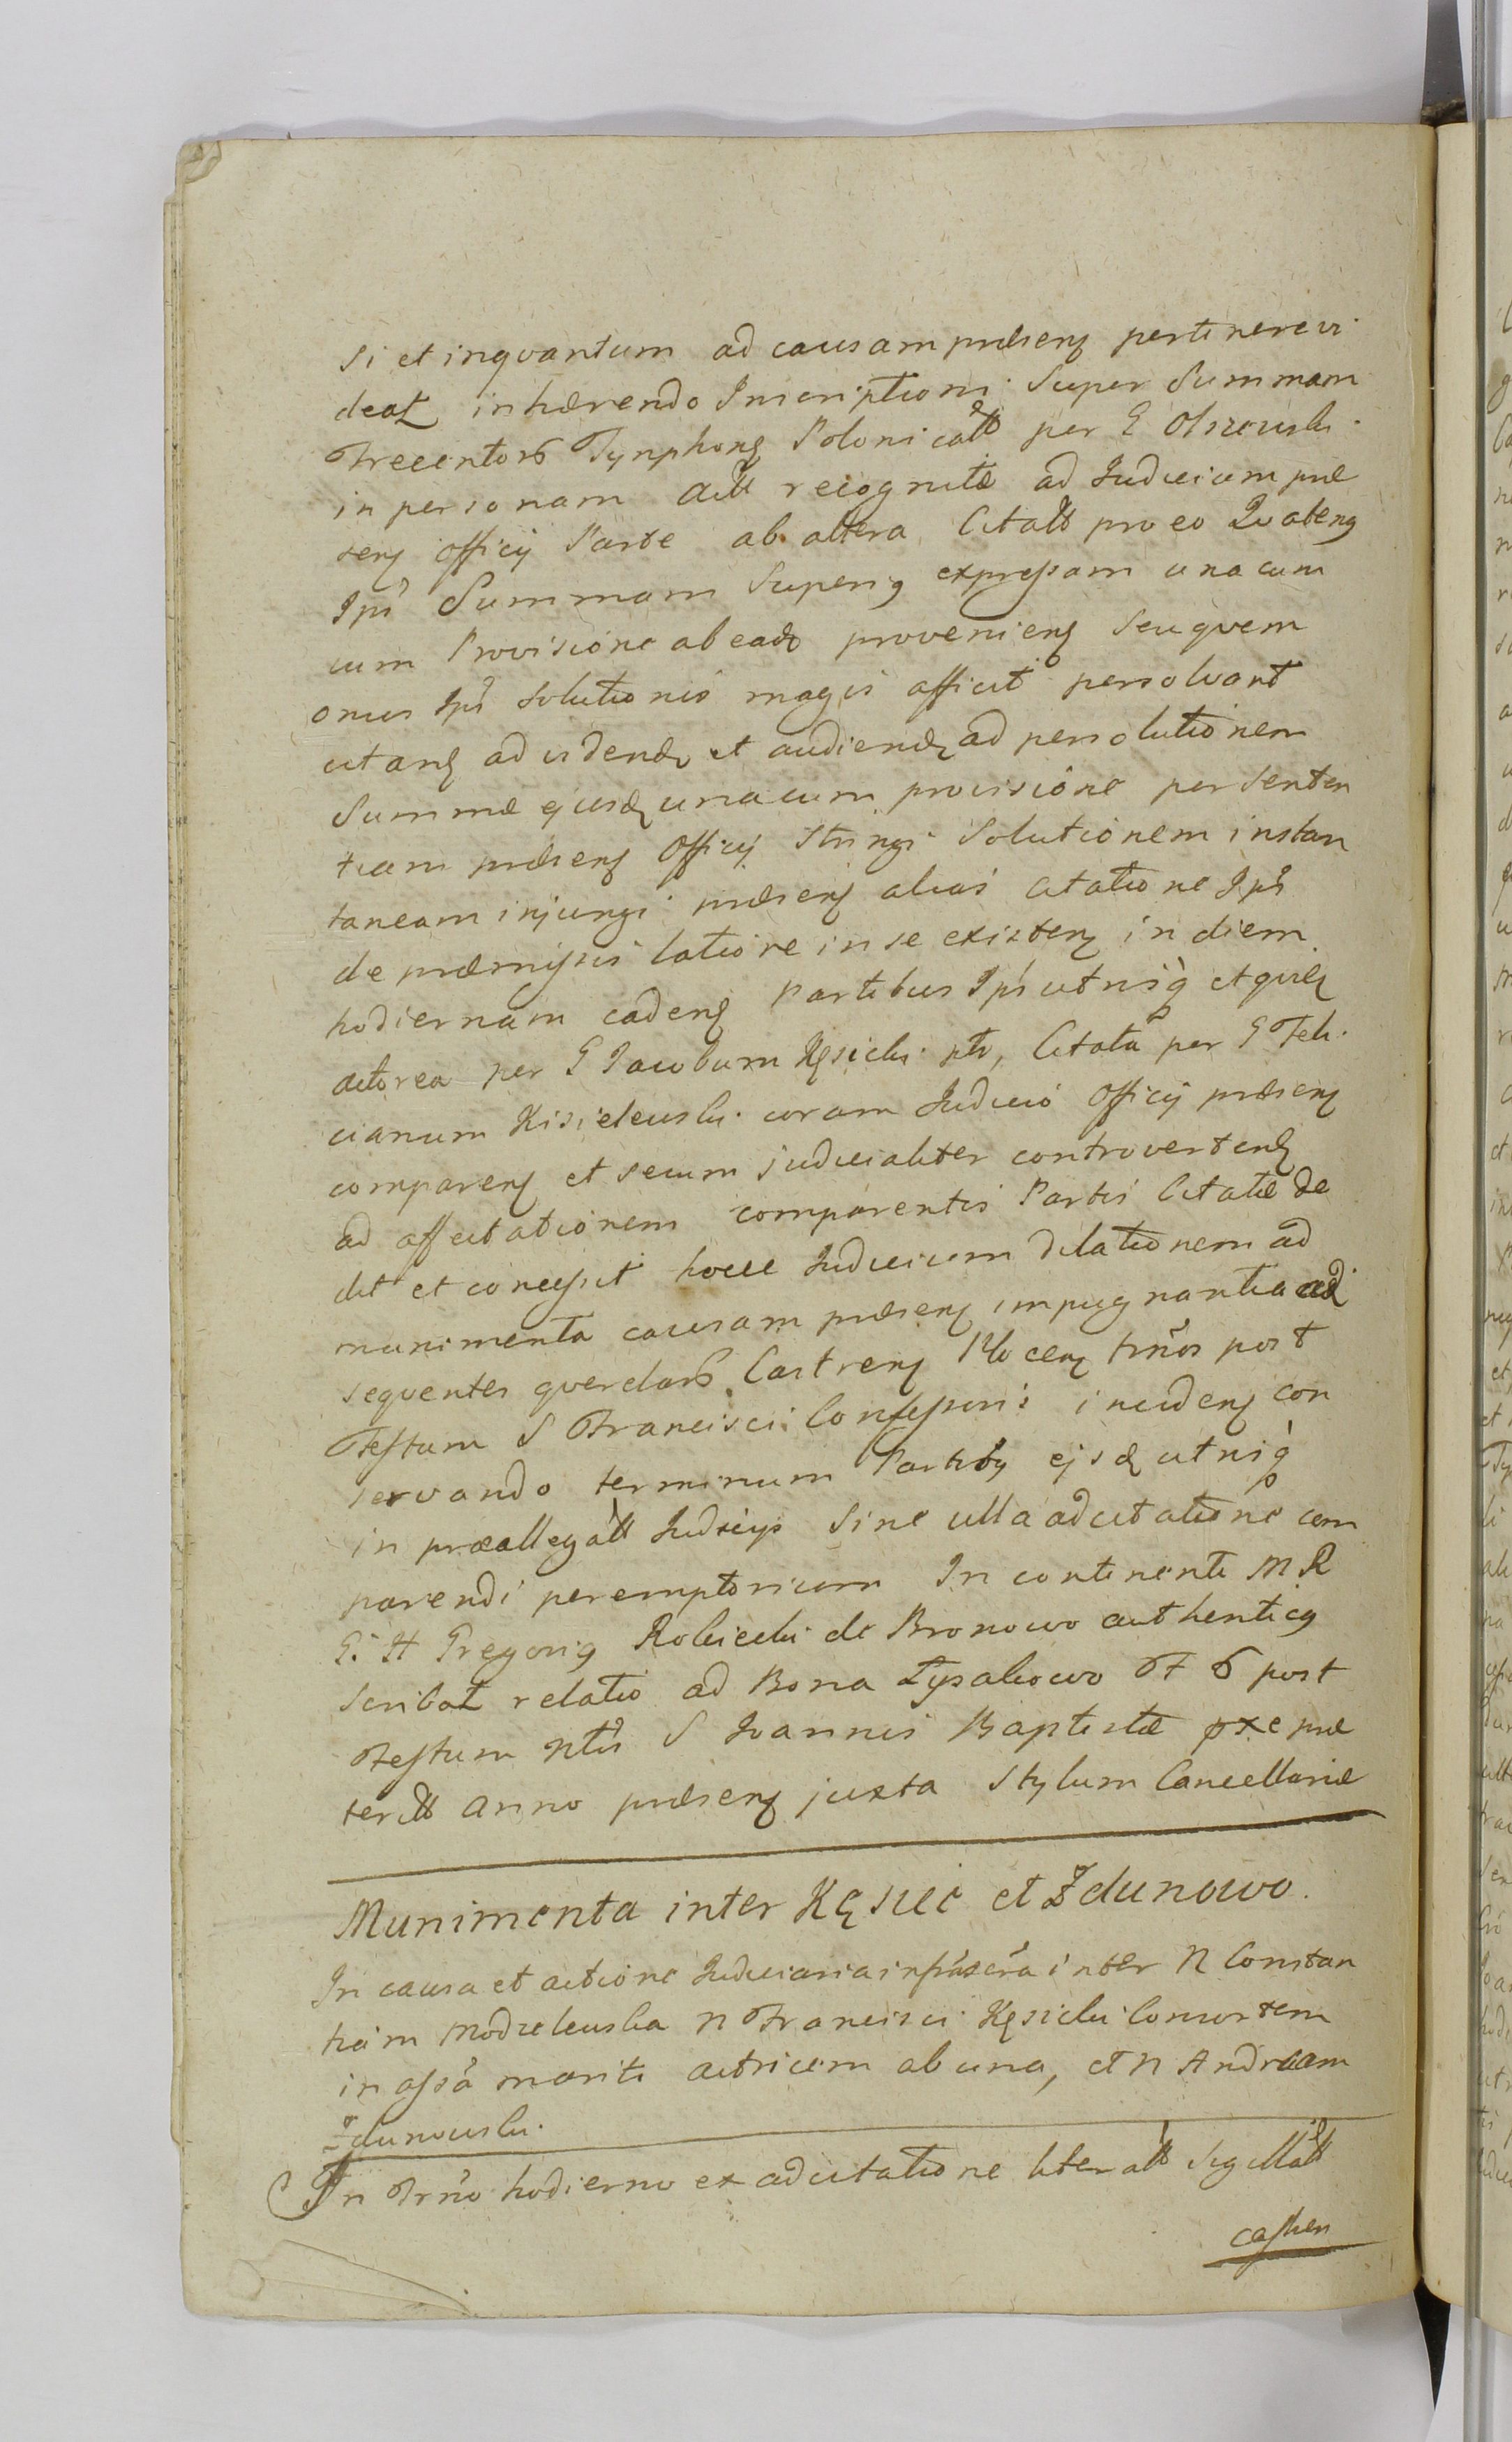 si et inqvantum ad causam præsenţ pertinerevi
deaţ inhærendo Inscriptioni Super Summam
Trecentorȣ Tynphonȩ Polonicałł per G Olszewski
in personam Acłł recognitæ ad Judicium præ
senţ Officij Parte ab altera Citałł pro eo Qvatenꝯ
Ipsi Summam Superiꝯ expressam una cum
cum Provisione ab eadȩ provenienţ Seu qvem
onus Ipsi Solutionis magis afficit persolvant
citanţ ad videndȩ et audiendȩ ad persolutionem
Summæ ejusdȩ una cum provisione per Senten
tiam præsenţ Officij Stringi Solutionem instan
taneam injungi præsenţ alias citatione Ipsis
de præmissis latiore in se existenţ in diem
hodiernam cadenţ Partibus Ipsis utrisq et qvidȩ
Actorea per G Jacobum Kęsicki ptɨ, Citata per G Feli
cianum Kisielewski coram Judicio Officij præsenţ
comparenţ et secum judicialiter controvertenţ
ad affectationem comparentis Partis Citatæ de
dit et concessit hocce Judicium dilationem ad
munimenta causam præsenţ impugnantia ad
seqventes qverelarȣ Castrenţ Plocenţ trnos post
Festum S Francisci Confessoris incidenţ con
servando terminum Partibꝯ ejsdȩ utrisq
in præallegałł Judicijs Sine ulla adcitatione com
parendi peremptorium In continenti M R
G. H Gregoriꝯ Robicki de Bronowo authenticꝯ
Scribaţ relatio ad Bona Łysakowo F 6 post
Festum Ntis S Joannis Baptistæ pxe præ
teritt Anno præsenţ juxta Stylum Cancellariæ
Munimenta inter Kęsice et Żdunowo.
In causa et actione Judiciaria infrascra inter N Constan
tiam Modzelewska N Francisci Kęsicki Consortem
in assa mariti Actricem ab una, et N Andream
Żdunowski
In Trno hodierno ex adcitatione literałł Sigillałł
Castren